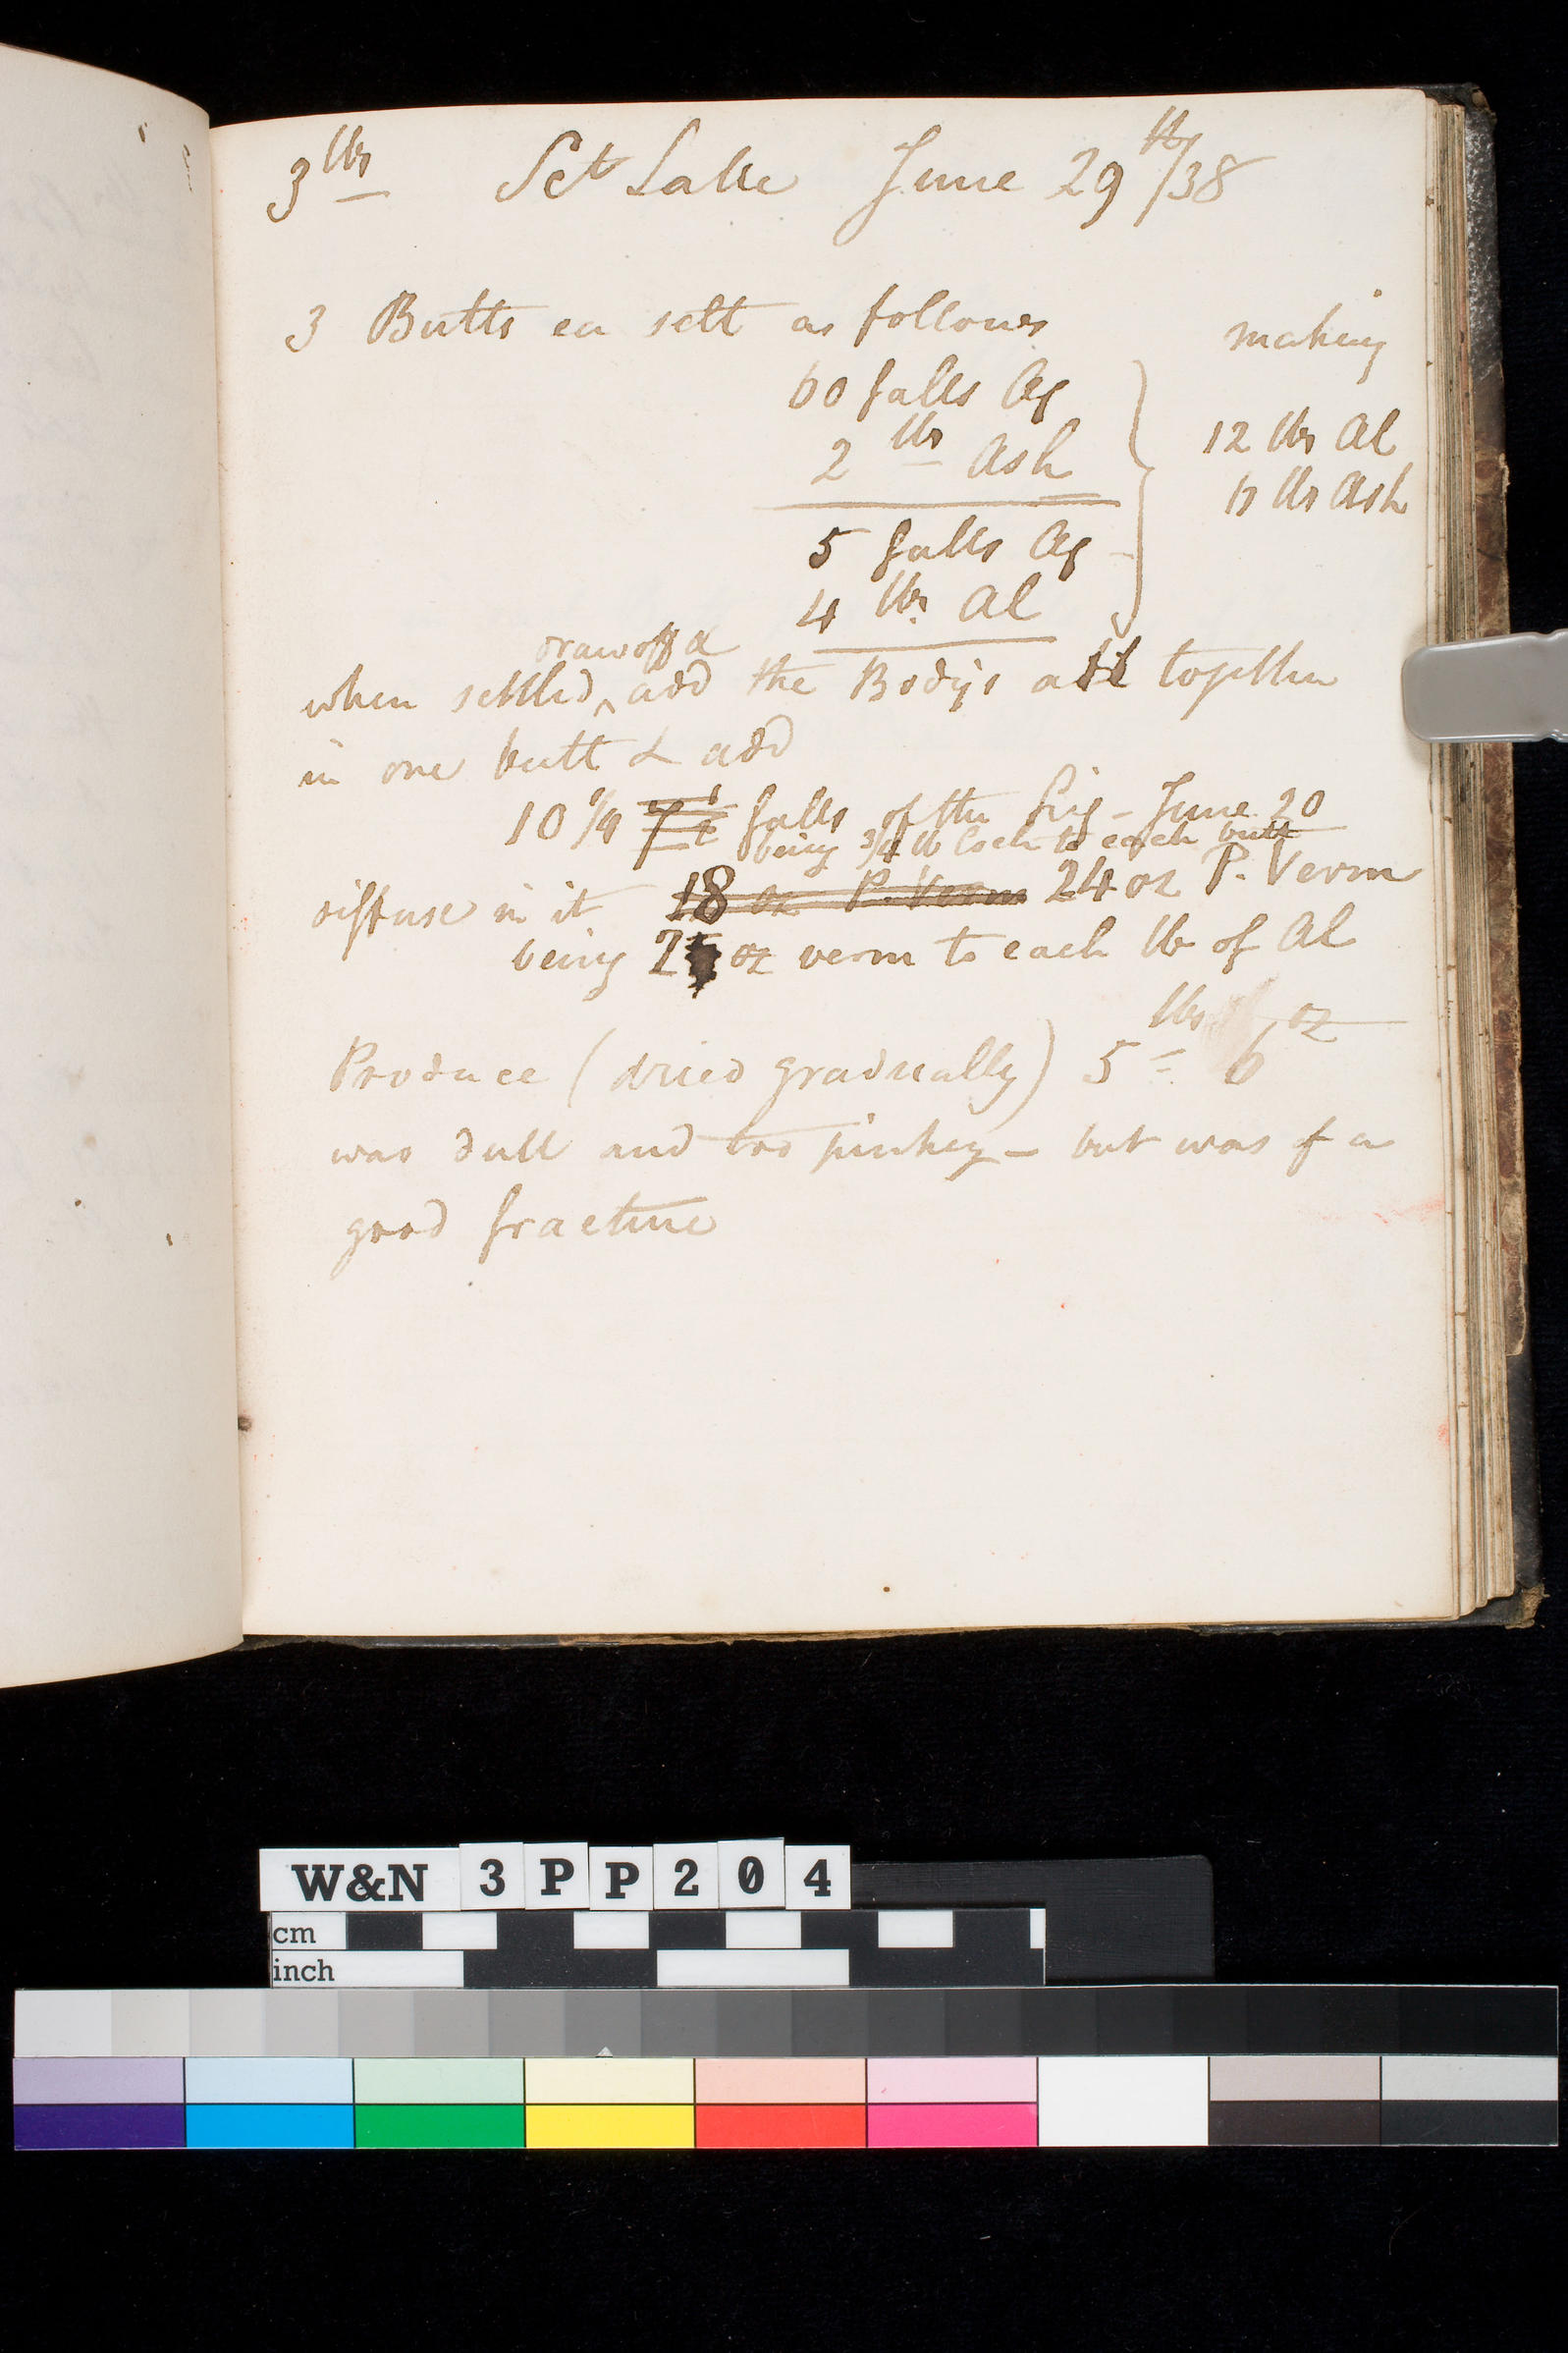 3 lbs Sct Lake June 29th/38
3 Butts ea sett as follows making
60 galls Aq
2 lbs Ash
12 lbs Al
6 lbs Ash
5 galls Aq
4 lbs Al
draw off &
when settled ^ add the Bodys all together
in one butt & add
10 1/4 galls of the Liq - June 20
being 3/4 lb Coch to each butt
diffuse in it 18 oz P. Verm 24 oz P. Verm
being 2 oz verm to each lb of Al
Produce (dried gradually) 5 lbs 6 oz
was dull and too pinkey - but was of a
good fracture
W&N 3PP204
cm
inch